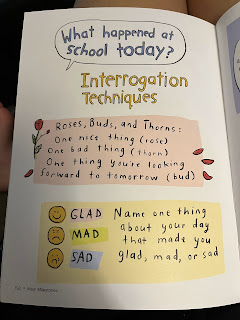 What happened at
school today?
Interrogation
Techniques
Roses, Buds, and Thorns:
One nice thing (rose)
One bad thing (thorn)
One thing you're looking
forward to tomorrow (bud)
GLAD Name one thing
MAD about your day
that made you
SAD glad, mad, or sad